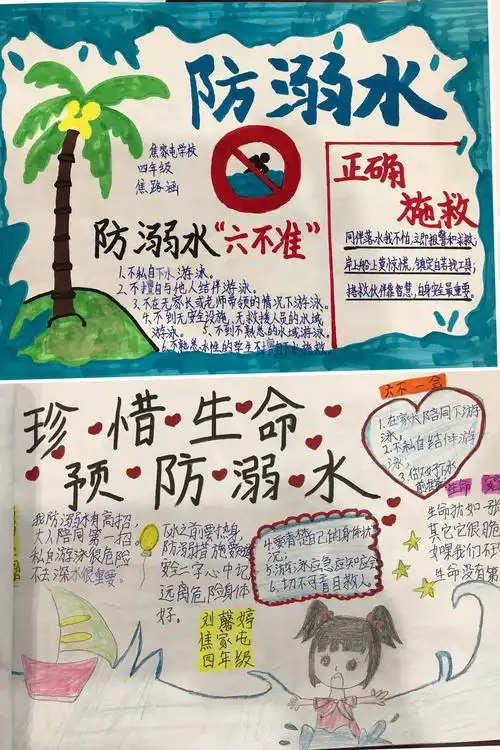 防溺水
焦家屯学校
四年级
焦路涵
防溺水“六不准”
1.不私自下水游泳。
2.不擅自与他人结伴游泳。
3.不在无家长或老师带领的情况下游泳。
4.不到无安全设施、无救援人员的水域
游泳。 5.不到不熟悉的水域游泳。
6.不熟悉水性的学生不擅自下水施救
正确
施救
同伴落水我不怕,立即报警和求救;
岸上船上莫惊慌,镇定自若找工具;
拯救伙伴靠智慧,自身安全最重要。
珍惜生命
预防溺水
六不一会
1.在家长陪同下游
泳。
2.不私自结伴游
泳;
3.做好下水
我防溺水有高招,
大人陪同第一招。
私自游泳很危险
不去深水很重要。
下水之前要热身,
防溺措施要
安全二字心中记
远离危险身体
好。
刘馨婷
焦家屯
四年级
4.要看自己的身体状
况;
5.游泳应急应知应会
6.切不可盲目救人。
生命
生命犹如一
其它它很脆
如果我们不
生命没有第